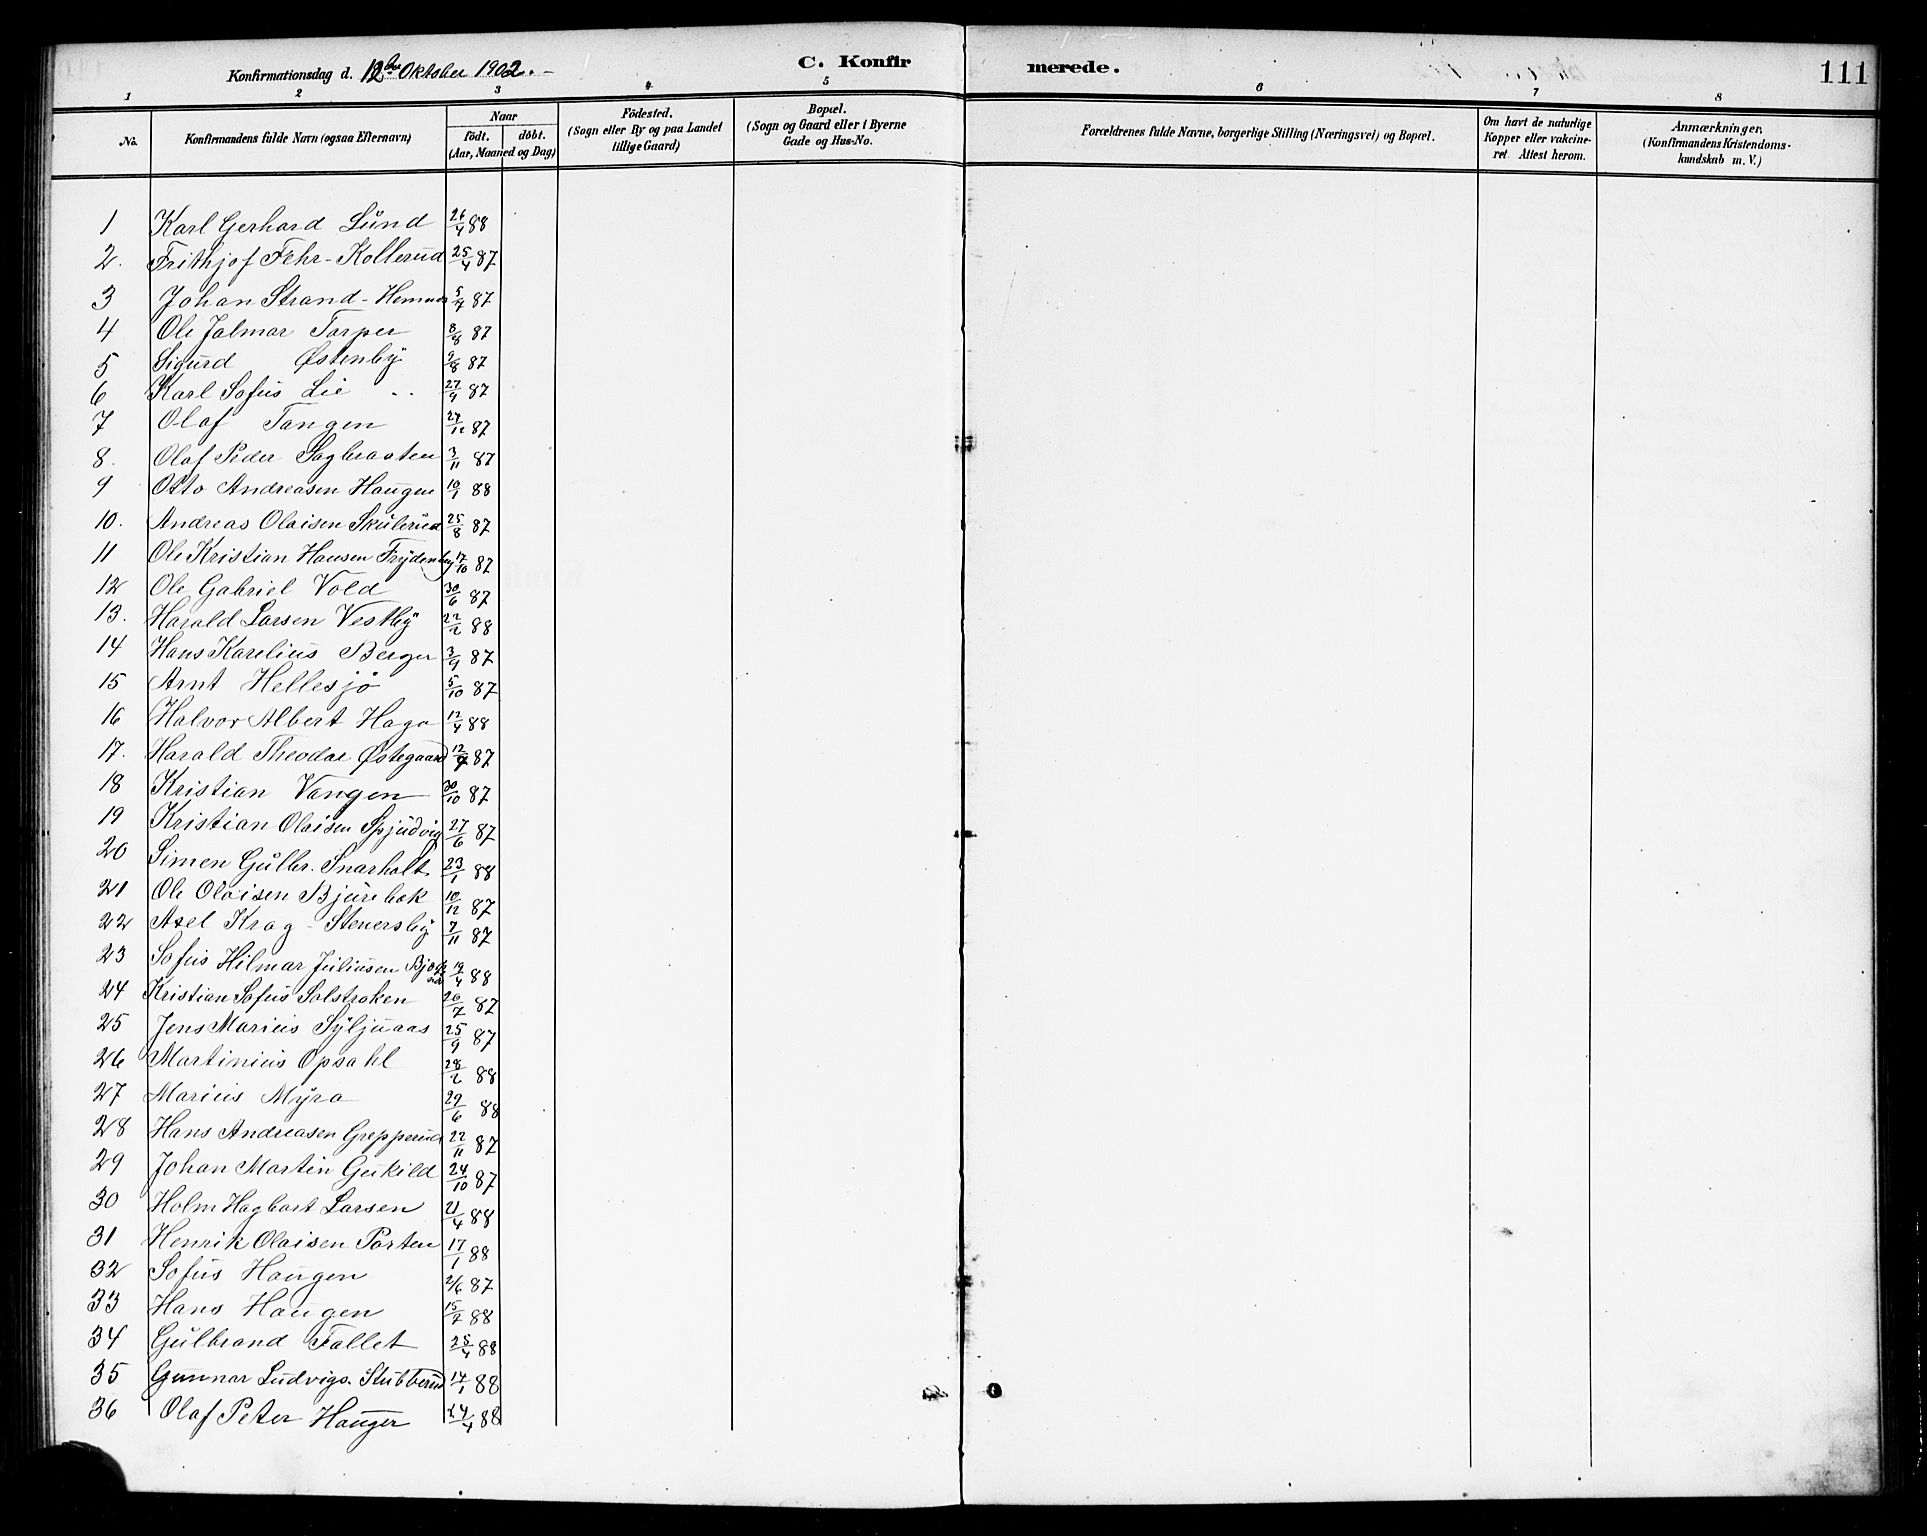 Konfirmationsdag d. 12te Oktober 1902. C. Konfirmerede. 111
1 2 3 4 5 6 7 8
No. Konfirmandens fulde Navn (ogsaa Efternavn) Naar födt. döbt. (Aar, Maaned og Dag) Födested. (Sogn eller By og paa Landet tillige Gaard) Bopæl. (Sogn og Gaard eller i Byerne Gade og Hus-No. Forældrenes fulde Navne, borgerlige Stilling (Næringsvei) og Bopæl. Om havt de naturlige Kopper eller vakcineret. Attest herom. Anmærkninger, (Konfirmandens Kristendomskundskab m. V.)
1 Karl Gerhard Lund 26/4 88
2. Frithjof Fehr-Kollerud 25/4 87
3 Johan Strand-Hemnes 5/7 87
4 Ole Jalmar Torper 8/8 87
5 Sigurd Østenby 9/8 87
6 Karl Sofus Lie 27/9 87
7 Olaf Tangen 27/12 87
8. Olaf Peder Sagbraaten 3/11 87
9 Otto Andreasen Haugen 10/1 88
10. Andreas Olaisen Skulerud 25/8 87
11 Ole Kristian Hansen Frydenberg 17/10 87
12 Ole Gabriel Vold 30/6 87
13. Harald Larsen Vestby 22/2 88
14 Hans Karelius Berger 3/9 87
15 Arnt Hellesjö 5/10 87
16 Halvor Albert Haga 12/4 88
17. Harald Theodor Østegaard 12/9 87
18 Kristian Vangen 30/10 87
19 Kristian Olaisen Spjudvig 27/6 87
20 Simen Gulbr. Snarholt 23/1 88
21 Ole Olaisen Bjurebæk 10/12 87
22 Axel Krag-Stenersby 7/11 87
23 Sofus Hilmar Juliusen 19/4 88
24 Kristian Sofus Solstroken 26/7 87
25 Jens Marius Syljuaas 25/9 87
26 Martinius Opsahl 28/2 88
27 Marius Myra 29/6 88
28 Hans Andreasen Grepperud 22/11 87
29 Johan Martin Gukild 24/10 87
30 Holm Hagbart Larsen 21/4 88
31 Henrik Olaisen Porten 17/1 88
32 Sofus Haugen 2/6 87
33 Hans Haugen 15/7 88
34 Gulbrand Fallet 25/4 88
35 Gunnar Ludvigs. Stubberud 14/1 88
36 Olaf Peter Hauger 24/4 88